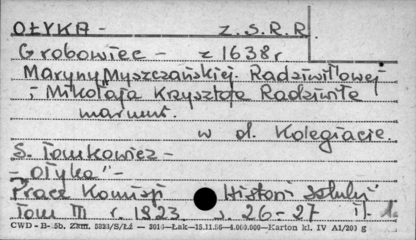 OŁYKA - Z.S.R.R.
Grobowiec - z 1638 r
Maryny Myszczańskiej Radziwiłłowej
i Mikołaja Krzysztofa Radziwiłła
marmur.
w d. Kolegiacie.
S. Tomkowicz -
- "Ołyka" -
Prace Komisji Histori Sztuki
Tom III r. 1923 s. 26-27 il. 1.
CWD - B- 5b. Zam. 5823/S/Łź - 3016-Łak-15.11.56-4.000.000-Karton kl. IV A1/200 g